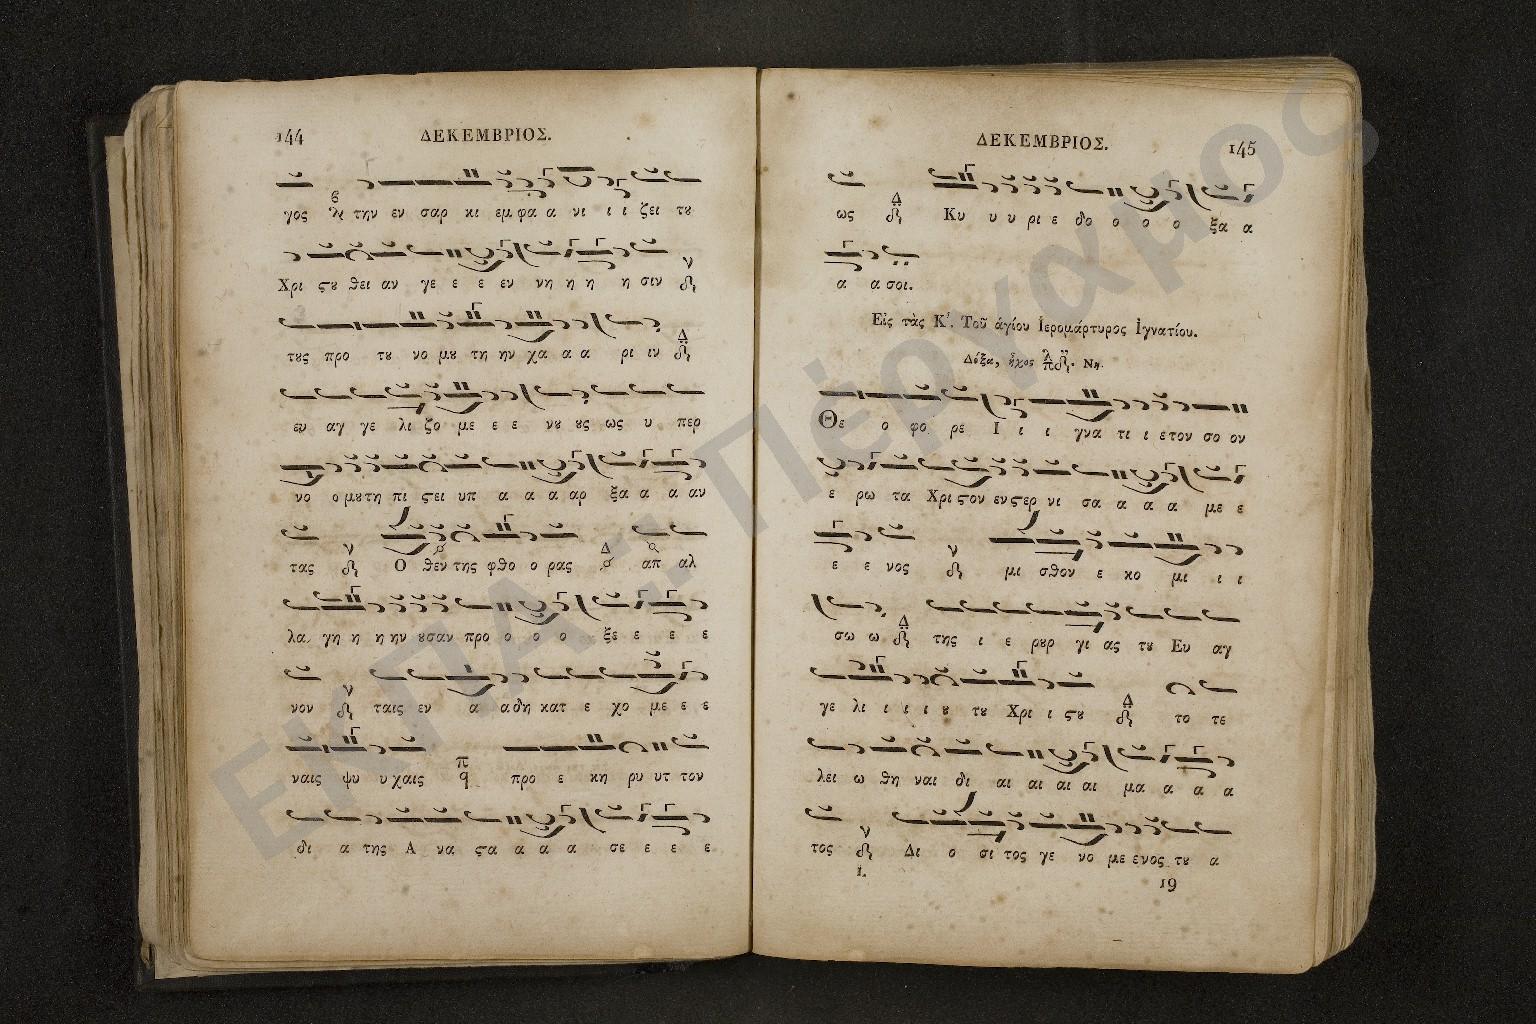 144
ΔΕΚΕΜΒΡΙΟΣ.
γος την εν σαρ κι εμ φα α νι ι ι ζει τȣ
Χρι ϛȣ θει αν γε ε ε εν νη η η η σιν
τȣς προ τȣ νο μȣ τη ην χα α α ρι ιν
ευ αγ γε λι ζο με ε ε νȣ ȣς ως υ περ
νο ο μȣ τη πι ϛει υπ α α α αρ ξα α α αν
τας Ο θεν της φθο ο ρας απ αλ
λα γη η η ην ȣσαν προ ο ο ο ξε ε ε ε
νον ταις εν α αδη κατ ε χο με ε ε
ναις ψυ υ χαις προ ε κη ρυ υτ τον
δι α της Α να ϛα α α α σε ε ε ε
ΔΕΚΕΜΒΡΙΟΣ.
145
ως Κυ υ υ ρι ε δο ο ο ο ξα α
α α σοι.
Εἰς τὰς Κ'. Τοῦ ἁγίου Ιερομάρτυρος Ιγνατίου.
Δόξα, ἦχος Νη.
Θε ο φο ρε Ι ι ι γνα τι ι ε τον σο ον
ε ρω τα Χρι ϛον εν ϛερ νι σα α α α με ε
ε ε νος μι σθον ε κο μι ι ι
σω ω της ι ε ρȣρ γι ας τȣ Ευ αγ
γε λι ι ι ι ȣ τȣ Χρι ι ϛȣ το τε
λει ω θη ναι δι αι αι αι αι μα α α α
τος Δι ο σι τος γε νο με ενος τȣ α
Ι. 19
ΕΚΠΑ... Πέργαμος